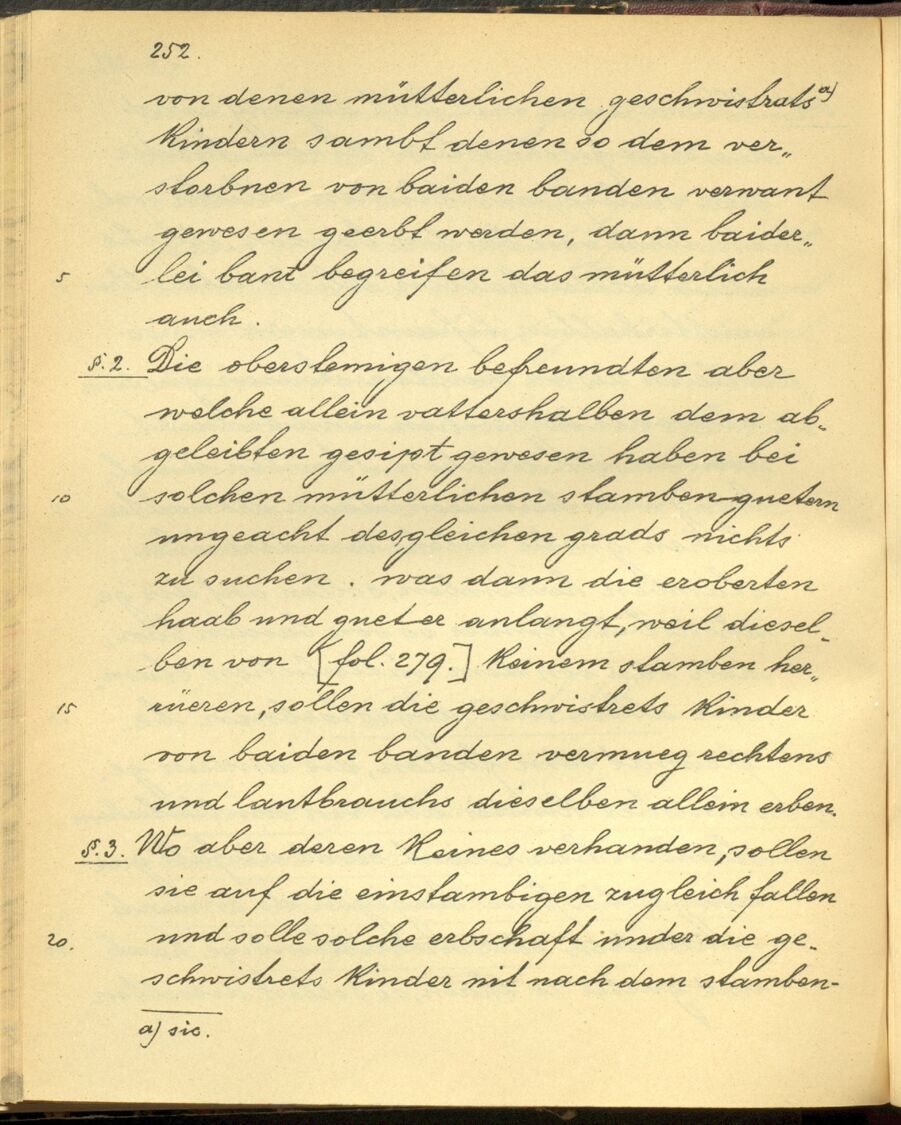 252.
von denen mütterlichen geschwistrats a)
Kindern sambt denen so dem ver„
storbnen von baiden banden verwant
gewesen geerbt werden, dann baider„
5 lei bant begreifen das mütterlich
auch.
§. 2. Die oberstemigen befreundten aber
welche allein vattershalben dem ab„
geleibten gesipt gewesen haben bei
10 solchen mütterlichen stamben-guetern
ungeacht desgleichen grads nichts
zu suchen. was dann die eroberten
haab und gueter anlangt, weil diesel„
ben von [fol. 279.] Keinem stamben her„
15 rüeren, sollen die geschwistrets Kinder
von baiden banden vermueg rechtens
und lantbrauchs dieselben allein erben.
§. 3. Wo aber deren Keines verhanden, sollen
sie auf die einstambigen zugleich fallen
20. und solle solche erbschaft under die ge„
schwistrets Kinder nit nach dem stamben-
a) sic.